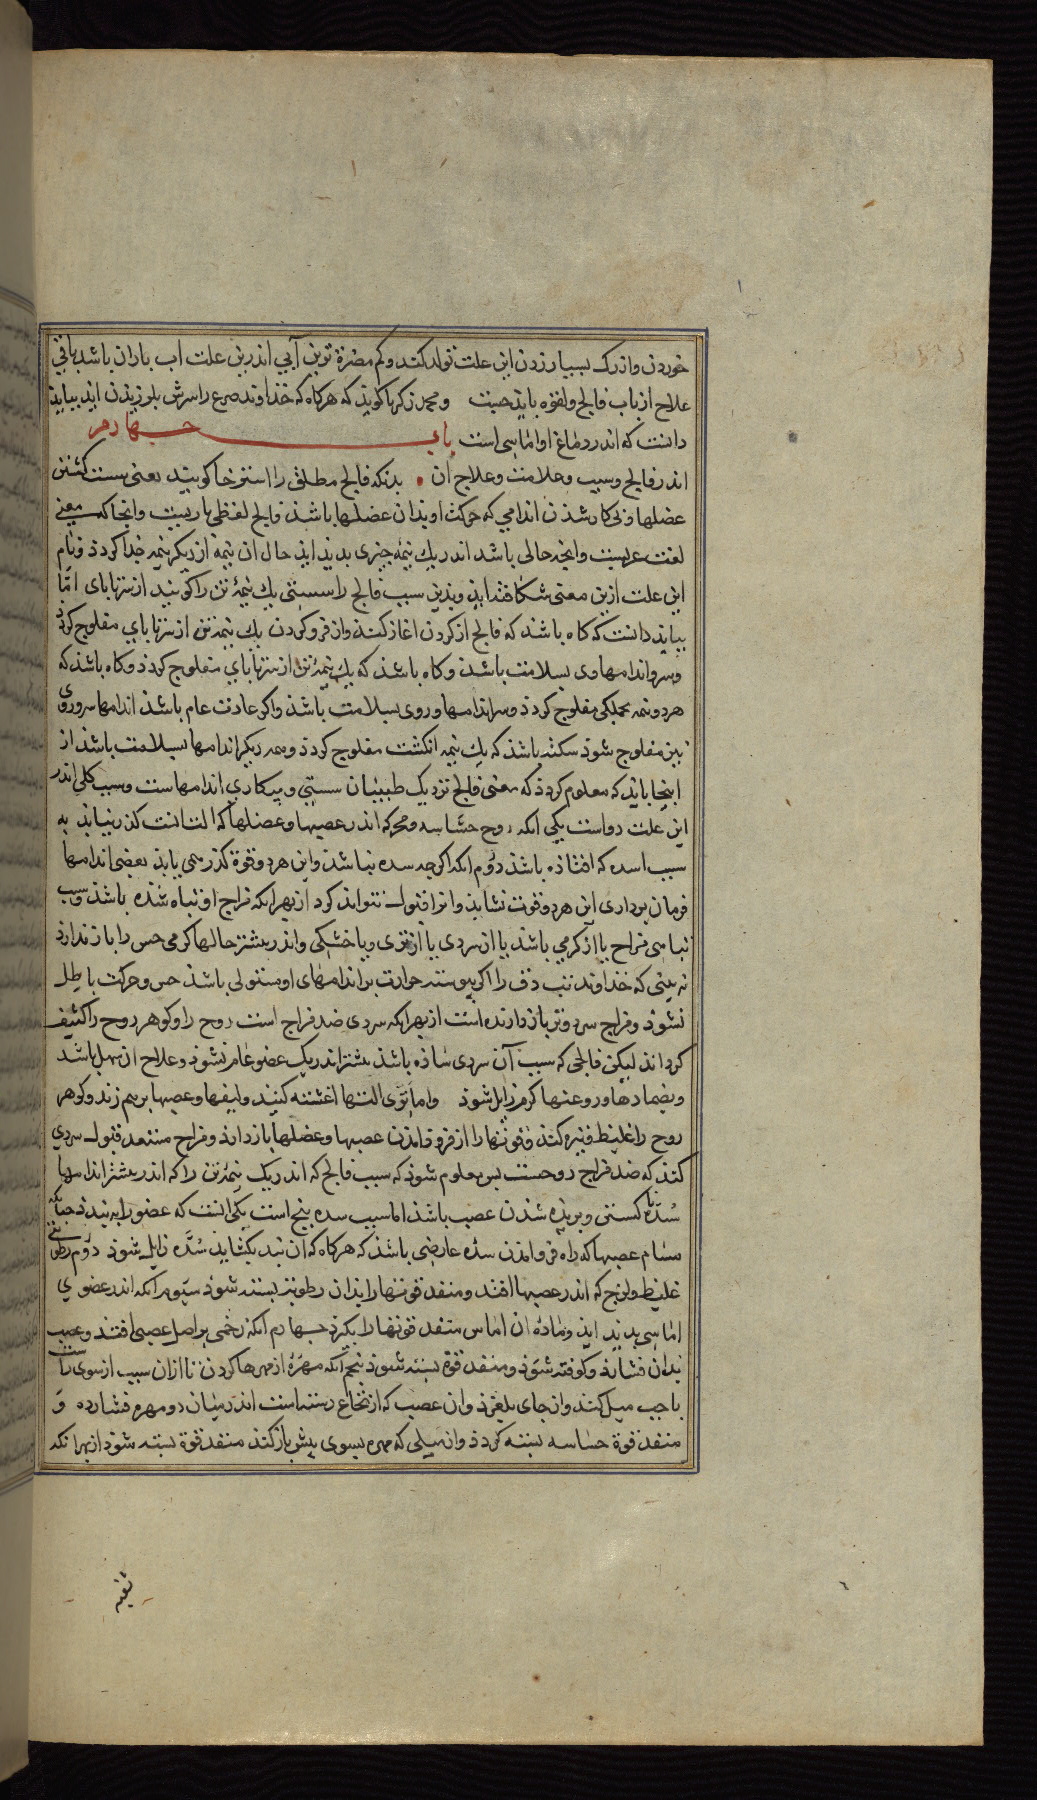 خوردن وازرک بسیار زدن این علت تولد کند وکم مضرة ترین آبی اندرین علت اب باران باشد باقی
علاج از باب فالج ولقوه باید جست ومحمد زکریا کوید که هرکاه که خذاوند صرع را سرش بلرزیدن اید بباید
دانست که اندر دماغ او اماسی است باب چهارم
اندر فالج وسبب وعلامت وعلاج آن بدنکه فالج مطلق را استرخا کویند یعنی سست کشتن
عضلها وبی کار شدن اندامی که حرکت او بذان عضلها باشد فالج لفظی پارسیست وانجا که معنی
لغت عربست وانچه حالی باشد اندر یک نیمه چیزی بدید اید حال ان نیمه از دیکر نیمه جذا کردد ونام
این علت ازین معنی شکافته اید وبدین سبب فالج را سستی یک نیمهٔ تن را کویند از سر تا پای امّا
بباید دانست که کاه باشد که فالج از کردن اغاز کند واز فرو کردن یک نیمه تن از سر تا پای مفلوج کردد
وسر واندامهاوی بسلامت باشد وکاه باشد که یک نیمهٔ تن از سر تا پای مفلوج کردد وکاه باشد که
هر دو نیمه بجملکی مفلوج کردد وسر واندامها وروی بسلامت باشد واکر عادت عام باشد اندامها سر وروی
نیز مفلوج شوذ سکته باشد که یک نیمه انکشت مفلوج کردد وهمه دیکر اندامها بسلامت باشد از
اینجا باید که معلوم کردد که معنی فالج نزدیک طبیبان سستی وبیکاری اندامهاست وسبب کلی اندر
این علت دواست یکی انکه روح حساسه ومحرکه اندر عصبها وعضلها که الت انست کذر نیابد به
سبب اسده که افتاذه باشد دوم انکه اکرچه سده نباشد واین هر دو قوة کذر می یابد بعضی اندامها
فرمان برداری این هر دو قوت نشاید وانرا قبول نتواند کرد ازبهر انکه مزاج او تباه شده باشد وسبب
تباهی مزاج یا از کرمی باشد یا از سردی یا از تری ویا خشکی واندر بیشتر حالها کرمی حس را باز ندارد
نه بینی که خذاوند تب دق را اکر پیوسته حرارت بر اندامهای او مستولی باشد حس وحرکت باطل
نشوذ ومزاج سرد وتر باز دارنده است ازبهر انکه سردی ضد مزاج است روح را وکوهر روح را کثیف
کرداند لیکن فالجی که سبب آن سردی ساذه باشد بیشتر اندر یک عضو عام نشوذ وعلاج ان سهل باشد
وبضمادها وروغنها کرم زایل شوذ واما تری التها اغشته کنید ولیفها وعصبها بر هم زند وکوهر
روح را غلیظ وتیره کند وقوتها را از فرو آمدن عصبها وعضلها باز دارد ومزاج مستعد قبول سردی
کند که ضد مزاج روحست پس معلوم شوذ که سبب فالج که اندر یک نیمهٔ تن را که اندر بیشتر اندامها
سُدّه یا کسستن وبریده شدن عصب باشد اما سبب سده پنج است یکی انست که عضو را ببندد چنانکه
مسام عصبها که راه فرو امدن سده عارضی باشد که هر کاه که ان بند بکشاید سُدَّه زایل شوذ دوم رطوبتی
غلیظ ولزج که اندر عصبها افتد ومنفد قوتها را بذان رطوبت بسته شوذ سیوم انکه اندر عضوی
اماسی بدید اید ومادهٔ ان اماس منفد قوتها را بکیرد چهارم انکه زخمی بر اصل عصبی افتد وعصب
بدان فشارد وکوفته شوذ ومنفد قوة بسته شوذ پنجم انکه مهرهٔ از مهرها کردن تا ازان سبب از سوی راست
یا چپ میل کند واز جای بلغزد وان عصب که از نخاع رسته است اندر میان دو مهره فشارده و
منفد قوة حساسه بسته کردد وان میلی که مهره بسوی پیش باز کند منفد قوة بسته شوذ ازبهر انکه